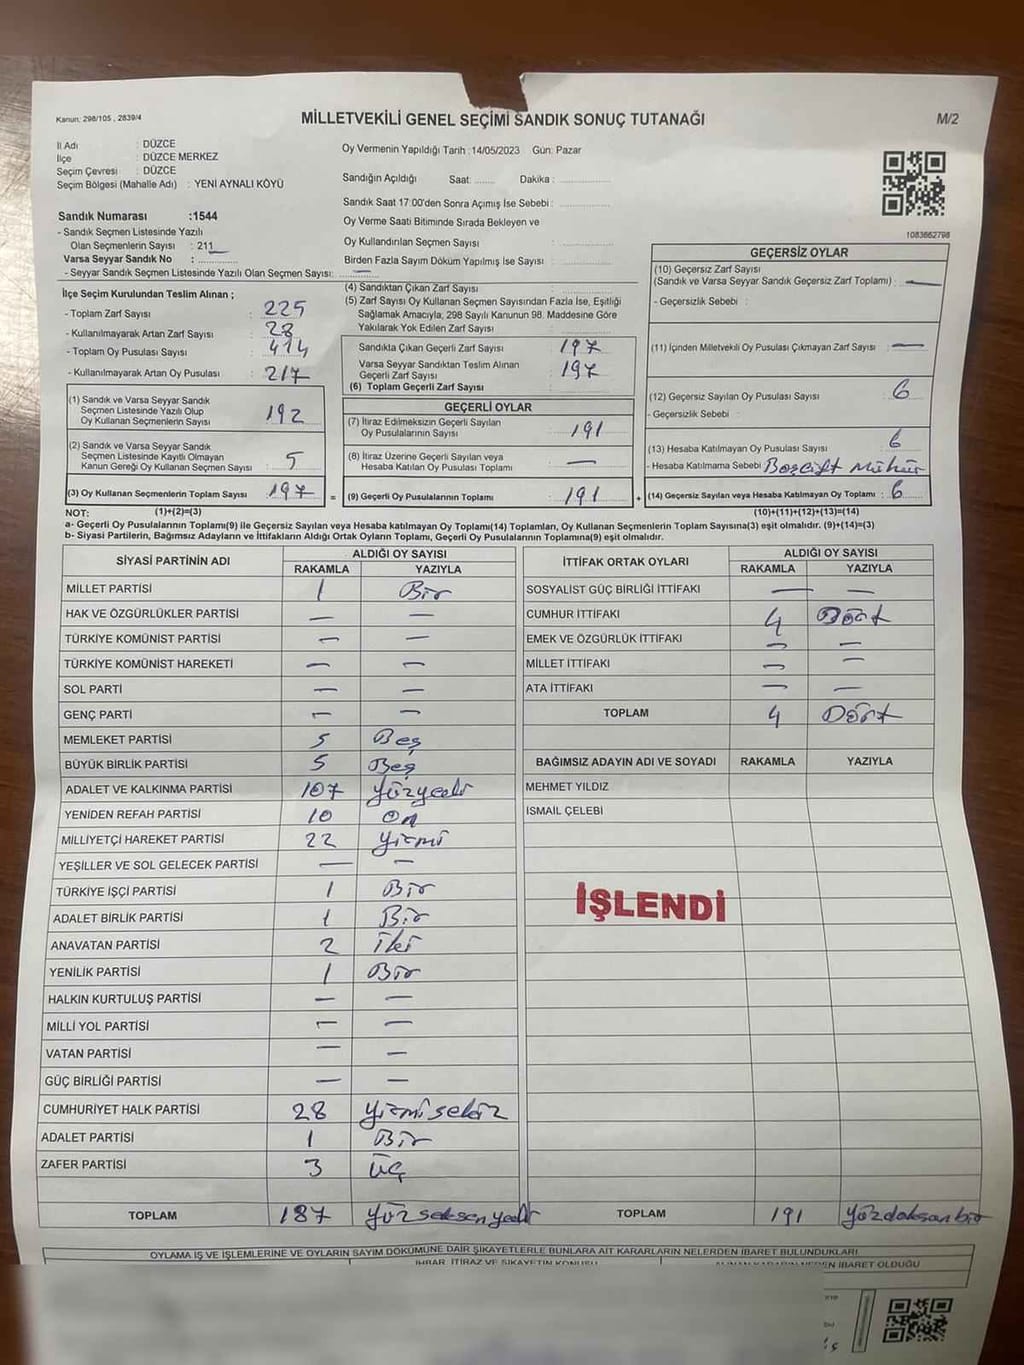 Kanun: 298/105 , 2839/4
MİLLETVEKİLİ GENEL SEÇİMİ SANDIK SONUÇ TUTANAĞI
M/2
İl Adı : DÜZCE
İlçe : DÜZCE MERKEZ
Seçim Çevresi : DÜZCE
Seçim Bölgesi (Mahalle Adı) : YENİ AYNALI KÖYÜ
Oy Vermenin Yapıldığı Tarih :14/05/2023 Gün: Pazar
Sandığın Açıldığı Saat: ........ Dakika : ..............
Sandık Saat 17:00'den Sonra Açımış İse Sebebi :
Oy Verme Saati Bitiminde Sırada Bekleyen ve
Oy Kullandırılan Seçmen Sayısı :
Birden Fazla Sayım Döküm Yapılmış İse Sayısı :
1083662798
Sandık Numarası :1544
- Sandık Seçmen Listesinde Yazılı
Olan Seçmenlerin Sayısı : 211
Varsa Seyyar Sandık No :
- Seyyar Sandık Seçmen Listesinde Yazılı Olan Seçmen Sayısı: —
İlçe Seçim Kurulundan Teslim Alınan ;
- Toplam Zarf Sayısı : 225
- Kullanılmayarak Artan Zarf Sayısı : 28
- Toplam Oy Pusulası Sayısı : 414
- Kullanılmayarak Artan Oy Pusulası : 217
(1) Sandık ve Varsa Seyyar Sandık
Seçmen Listesinde Yazılı Olup
Oy Kullanan Seçmenlerin Sayısı : 192
(2) Sandık ve Varsa Seyyar Sandık
Seçmen Listesinde Kayıtlı Olmayan
Kanun Gereği Oy Kullanan Seçmen Sayısı : 5
(3) Oy Kullanan Seçmenlerin Toplam Sayısı : 197
(4) Sandıktan Çıkan Zarf Sayısı :
(5) Zarf Sayısı Oy Kullanan Seçmen Sayısından Fazla İse, Eşitliği
Sağlamak Amacıyla, 298 Sayılı Kanunun 98. Maddesine Göre
Yakılarak Yok Edilen Zarf Sayısı :
Sandıkta Çıkan Geçerli Zarf Sayısı : 197
Varsa Seyyar Sandıktan Teslim Alınan
Geçerli Zarf Sayısı : 197
(6) Toplam Geçerli Zarf Sayısı :
GEÇERLİ OYLAR
(7) İtiraz Edilmeksizin Geçerli Sayılan
Oy Pusulalarının Sayısı : 191
(8) İtiraz Üzerine Geçerli Sayılan veya
Hesaba Katılan Oy Pusulası Toplamı : —
= (9) Geçerli Oy Pusulalarının Toplamı : 191 +
GEÇERSİZ OYLAR
(10) Geçersiz Zarf Sayısı
(Sandık ve Varsa Seyyar Sandık Geçersiz Zarf Toplamı) : —
- Geçersizlik Sebebi :
(11) İçinden Milletvekili Oy Pusulası Çıkmayan Zarf Sayısı : —
(12) Geçersiz Sayılan Oy Pusulası Sayısı : 6
- Geçersizlik Sebebi :
(13) Hesaba Katılmayan Oy Pusulası Sayısı : 6
- Hesaba Katılmama Sebebi : Boş çift Mühür
(14) Geçersiz Sayılan veya Hesaba Katılmayan Oy Toplamı : 6
NOT: (1)+(2)=(3)
(10)+(11)+(12)+(13)=(14)
a- Geçerli Oy Pusulalarının Toplamı(9) ile Geçersiz Sayılan veya Hesaba katılmayan Oy Toplamı(14) Toplamları, Oy Kullanan Seçmenlerin Toplam Sayısına(3) eşit olmalıdır. (9)+(14)=(3)
b- Siyasi Partilerin, Bağımsız Adayların ve İttifakların Aldığı Ortak Oyların Toplamı, Geçerli Oy Pusulalarının Toplamına(9) eşit olmalıdır.
SİYASİ PARTİNİN ADI ALDIĞI OY SAYISI
RAKAMLA YAZIYLA
MİLLET PARTİSİ 1 Bir
HAK VE ÖZGÜRLÜKLER PARTİSİ — —
TÜRKİYE KOMÜNİST PARTİSİ — —
TÜRKİYE KOMÜNİST HAREKETİ — —
SOL PARTİ — —
GENÇ PARTİ — —
MEMLEKET PARTİSİ 5 Beş
BÜYÜK BİRLİK PARTİSİ 5 Beş
ADALET VE KALKINMA PARTİSİ 107 Yüzyedi
YENİDEN REFAH PARTİSİ 10 On
MİLLİYETÇİ HAREKET PARTİSİ 22 Yirmi
YEŞİLLER VE SOL GELECEK PARTİSİ — —
TÜRKİYE İŞÇİ PARTİSİ 1 Bir
ADALET BİRLİK PARTİSİ 1 Bir
ANAVATAN PARTİSİ 2 İki
YENİLİK PARTİSİ 1 Bir
HALKIN KURTULUŞ PARTİSİ — —
MİLLİ YOL PARTİSİ — —
VATAN PARTİSİ — —
GÜÇ BİRLİĞİ PARTİSİ — —
CUMHURİYET HALK PARTİSİ 28 Yirmi sekiz
ADALET PARTİSİ 1 Bir
ZAFER PARTİSİ 3 Üç
TOPLAM 187 Yüz seksen yedi
İTTİFAK ORTAK OYLARI ALDIĞI OY SAYISI
RAKAMLA YAZIYLA
SOSYALİST GÜÇ BİRLİĞİ İTTİFAKI — —
CUMHUR İTTİFAKI 4 Dört
EMEK VE ÖZGÜRLÜK İTTİFAKI — —
MİLLET İTTİFAKI — —
ATA İTTİFAKI — —
TOPLAM 4 Dört
BAĞIMSIZ ADAYIN ADI VE SOYADI RAKAMLA YAZIYLA
MEHMET YILDIZ
İSMAİL ÇELEBİ
İŞLENDİ
TOPLAM 191 Yüzdoksan bir
OYLAMA İŞ VE İŞLEMLERİNE VE OYLARIN SAYIM DÖKÜMÜNE DAİR ŞİKAYETLERLE BUNLARA AİT KARARLARIN NELERDEN İBARET BULUNDUKLARI
İHBAR, İTİRAZ VE ŞİKAYETİN KONUSU
İBARET OLDUĞU